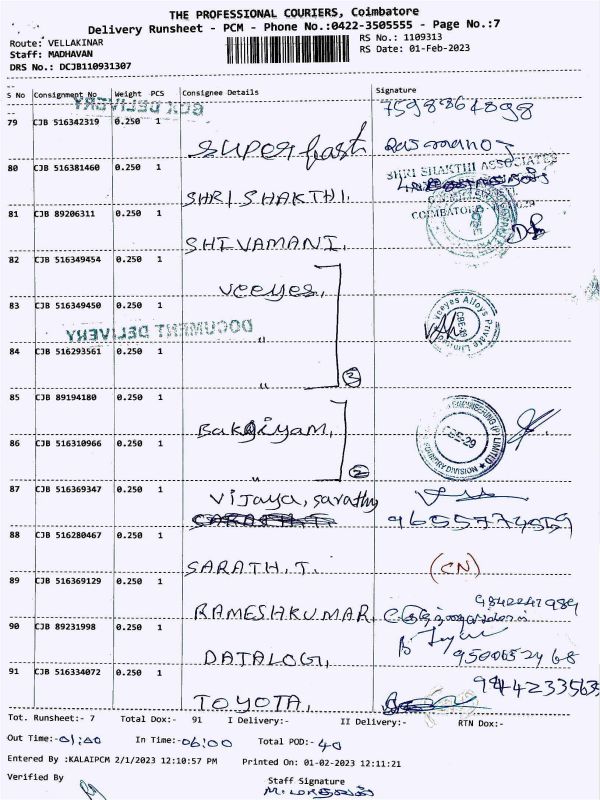 THE PROFESSIONAL COURIERS, Coimbatore
Delivery Runsheet - PCM - Phone No.:0422-3505555 - Page No.:7
Route: VELLAKINAR RS No.: 1109313
Staff: MADHAVAN RS Date: 01-Feb-2023
DRS No.: DCJB110931307
S No Consignment No Weight PCS Consignee Details Signature
DELIVERY
79 CJB 516342319 0.250 1 7598864898
Super fast
80 CJB 516381460 0.250 1 SHRI SHAKTHI ASSOCIATES
SHRI SHAKTHI.
81 CJB 89206311 0.250 1 COIMBATORE
SHIVAMANI.
82 CJB 516349454 0.250 1
Veeyes,
83 CJB 516349450 0.250 1 Veeyes Alloys Private Limited CBE-29
DOCUMENT DELIVERY
"
84 CJB 516293561 0.250 1
" 3
85 CJB 89194180 0.250 1 ENGINEERING (P) LIMITED CBE-29 FOUNDRY DIVISION
Bakgiyam,
86 CJB 516310966 0.250 1
2
87 CJB 516369347 0.250 1
Vijaya, sarathy
88 CJB 516280467 0.250 1
SARATH.T. (CN)
89 CJB 516369129 0.250 1 9842241989
RAMESHKUMAR
90 CJB 89231998 0.250 1
DATALOGI, 9500652468
91 CJB 516334072 0.250 1 9442335635
TOYOTA,
Tot. Runsheet:- 7 Total Dox:- 91 I Delivery:- II Delivery:- RTN Dox:-
Out Time:- 01:00 In Time:- 06:00 Total POD:- 40
Entered By :KALAIPCM 2/1/2023 12:10:57 PM Printed On: 01-02-2023 12:11:21
Verified By Staff Signature